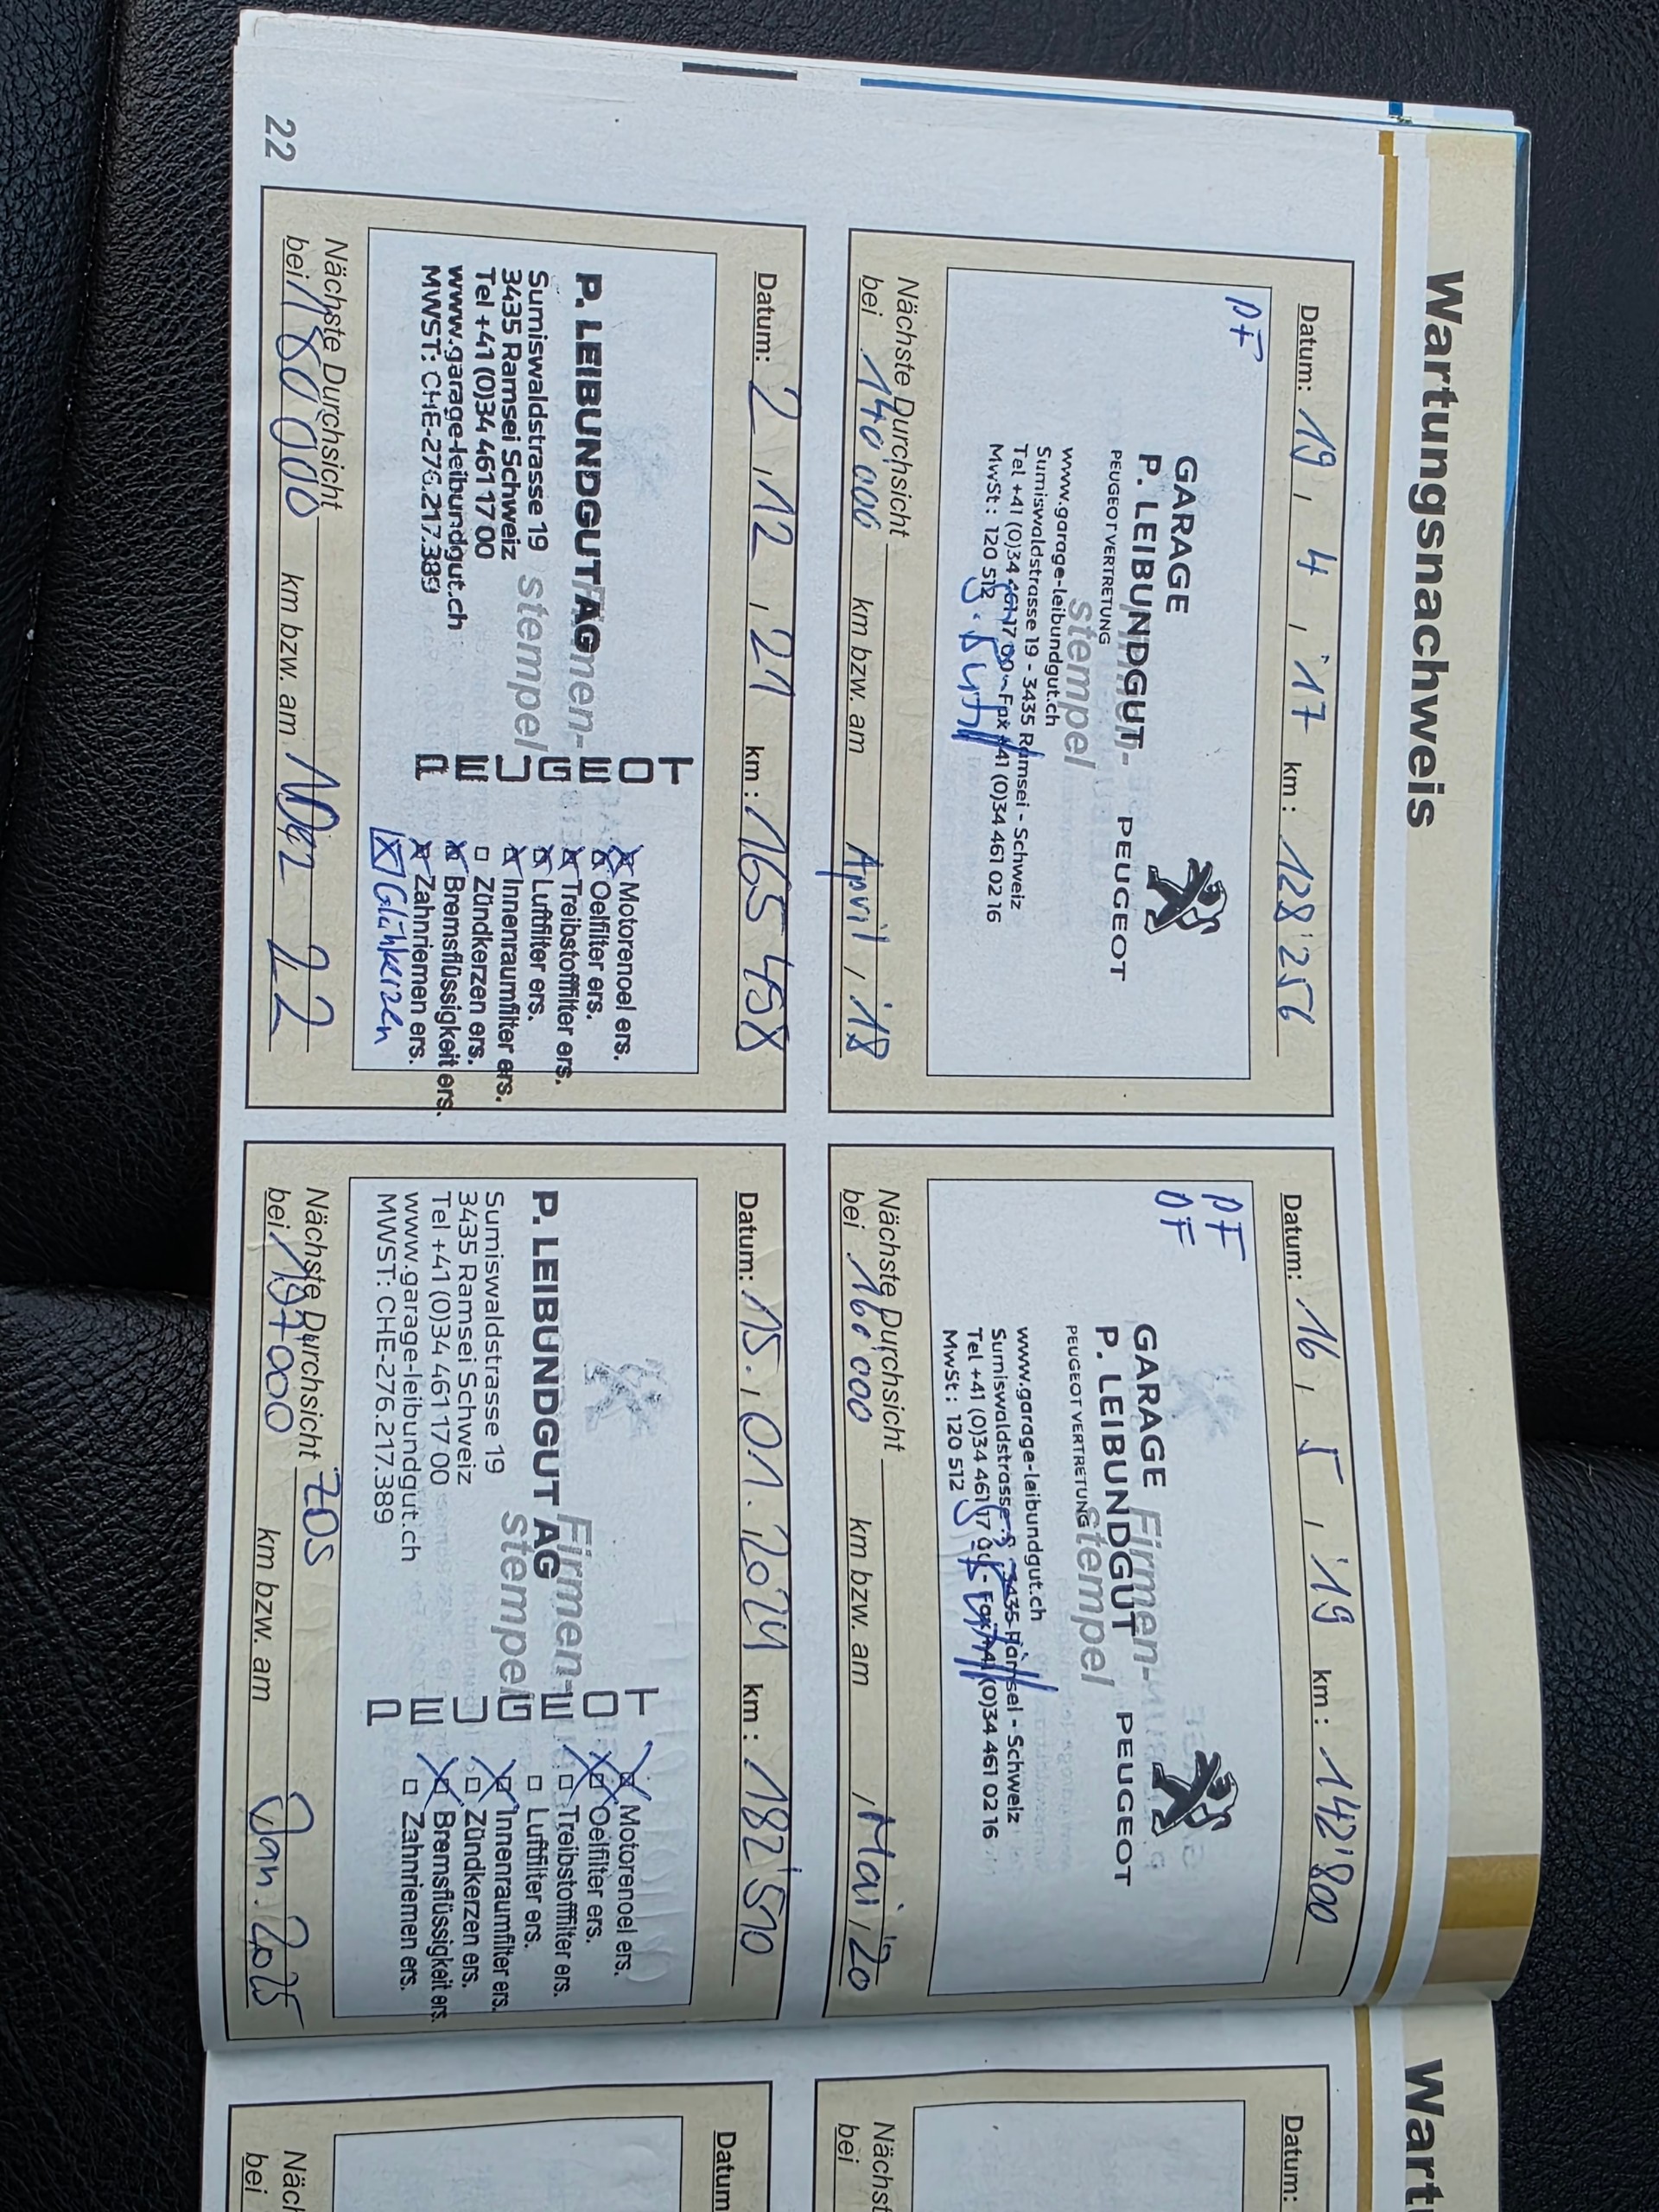 Wartungsnachweis
Datum: 19, 4, '17 km: 128'256
PF
GARAGE
P. LEIBUNDGUT
PEUGEOT VERTRETUNG
PEUGEOT
stempel
www.garage-leibundgut.ch
Sumiswaldstrasse 19 - 3435 Ramsei - Schweiz
Tel +41 (0)34 461 17 00 - Fax +41 (0)34 461 02 16
MwSt: 120 512
Nächste Durchsicht
bei 140'000 km bzw. am April, '18
Datum: 16, 5, '19 km: 142'800
PF
GARAGE Firmen-
P. LEIBUNDGUT
PEUGEOT VERTRETUNG
PEUGEOT
stempel
www.garage-leibundgut.ch
Sumiswaldstrasse 3435 Ramsei - Schweiz
Tel +41 (0)34 461 17 Fax (0)34 461 02 16
MwSt: 120 512
Nächste Durchsicht
bei 160'000 km bzw. am , Mai, '20
Datum: 2, 12, 21 km: 165 458
P. LEIBUNDGUT AG men-
Sumiswaldstrasse 19 stempel
3435 Ramsei Schweiz
Tel +41 (0)34 461 17 00
www.garage-leibundgut.ch
MWST: CHE-276.217.389
PEUGEOT
Motorenoel ers.
Oelfilter ers.
Treibstofffilter ers.
Luftfilter ers.
Innenraumfilter ers.
Zündkerzen ers.
Bremsflüssigkeit ers.
Zahnriemen ers.
Glühkerzen
Nächste Durchsicht
bei 180000 km bzw. am 22
Datum: 15., 01., 2024 km: 182'510
Firmen-
P. LEIBUNDGUT AG
stempel
Sumiswaldstrasse 19
3435 Ramsei Schweiz
Tel +41 (0)34 461 17 00
www.garage-leibundgut.ch
MWST: CHE-276.217.389
PEUGEOT
Motorenoel ers.
Oelfilter ers.
Treibstofffilter ers.
Luftfilter ers.
Innenraumfilter ers.
Zündkerzen ers.
Bremsflüssigkeit ers.
Zahnriemen ers.
Nächste Durchsicht
bei 197000 km bzw. am Jan. 2025
22
Wart
Datum:
Nächst
bei
Datum
Näc
bei